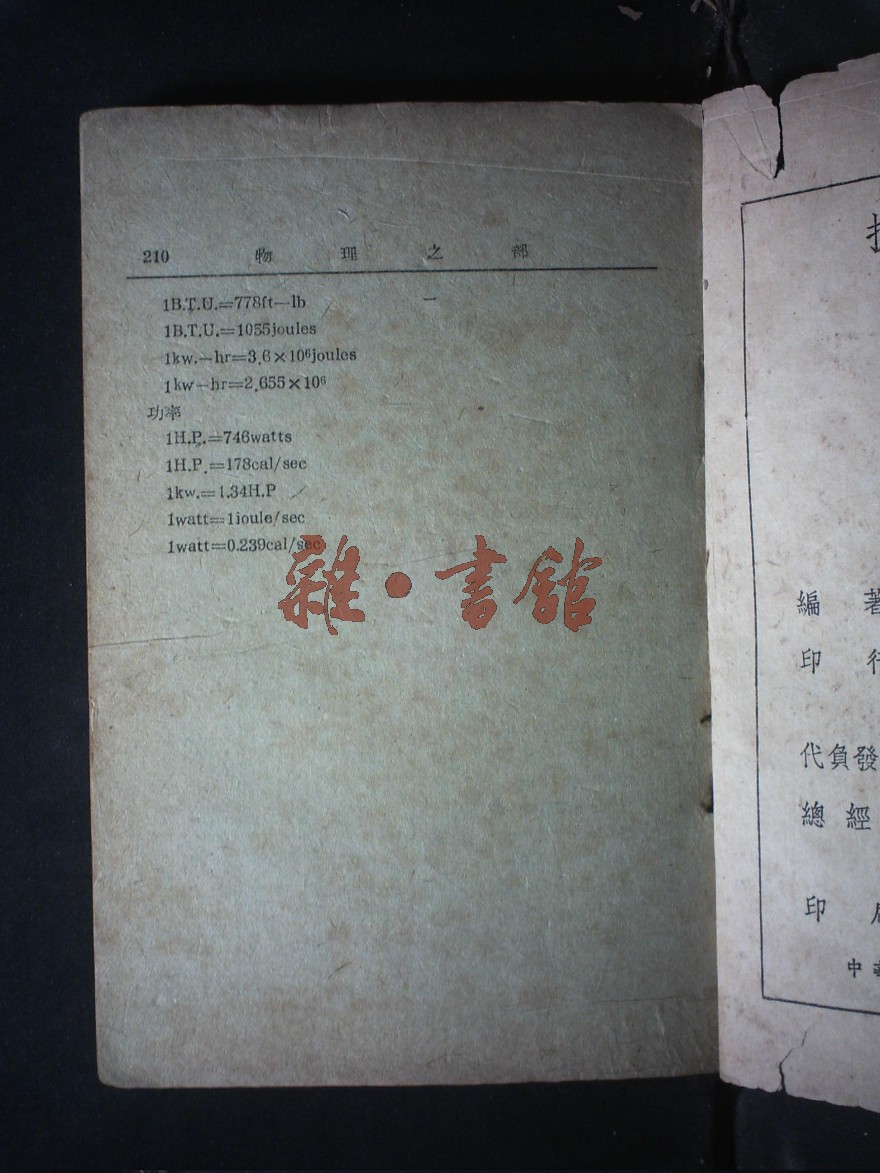 210 物理之部
1B.T.U.=778ft—lb
1B.T.U.=1055joules
1kw.—hr=3.6×10⁶joules
1kw—hr=2.655×10⁶
功率
1H.P.=746watts
1H.P.=178cal/sec
1kw.=1.34H.P
1watt=1joule/sec
1watt=0.239cal/sec
雜·書館
編 著
印 行
代負發
總 經
印
中